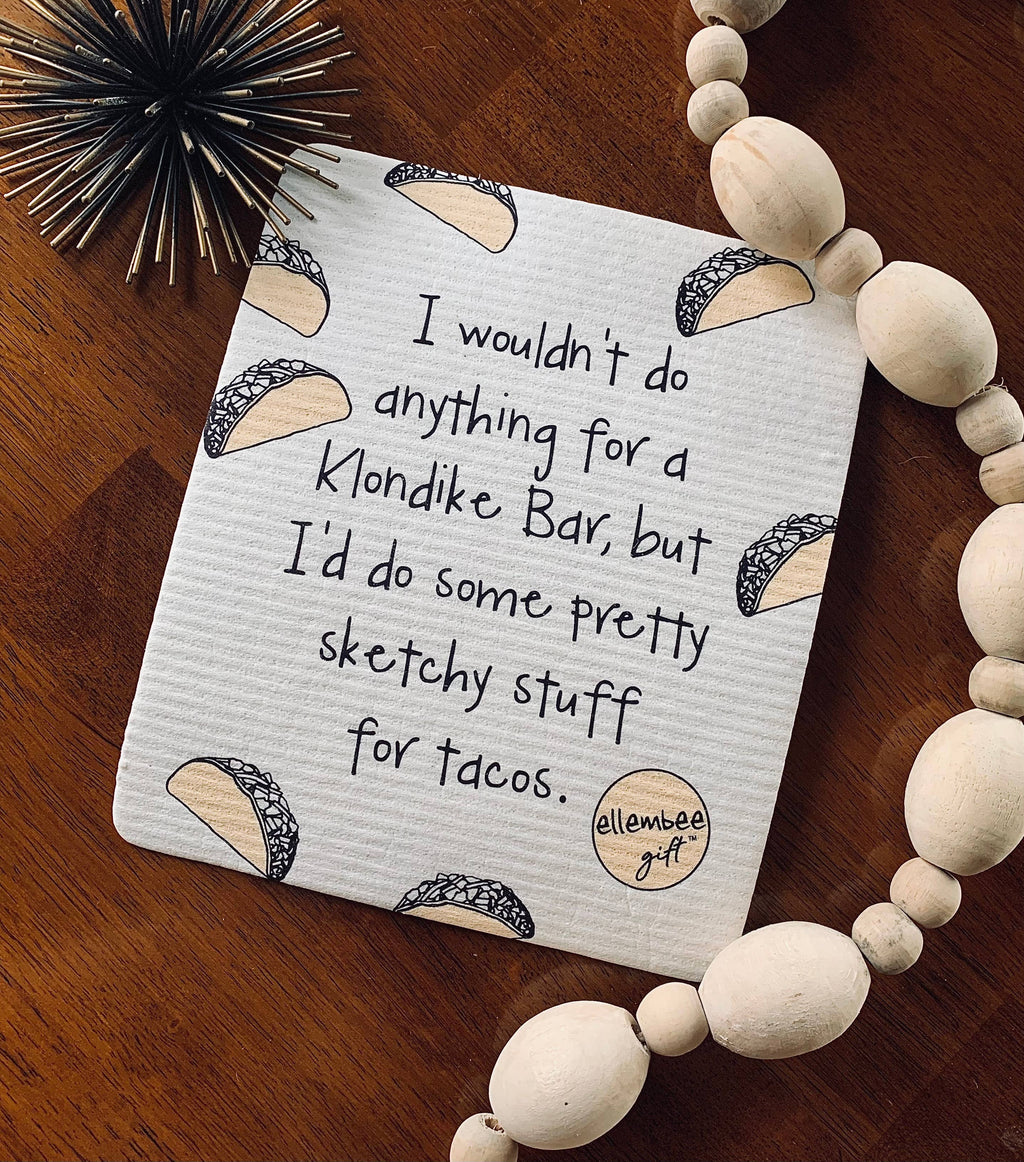 I wouldn't do
anything for a
Klondike Bar, but
I'd do some pretty
sketchy stuff
for tacos.
ellembee
gift™